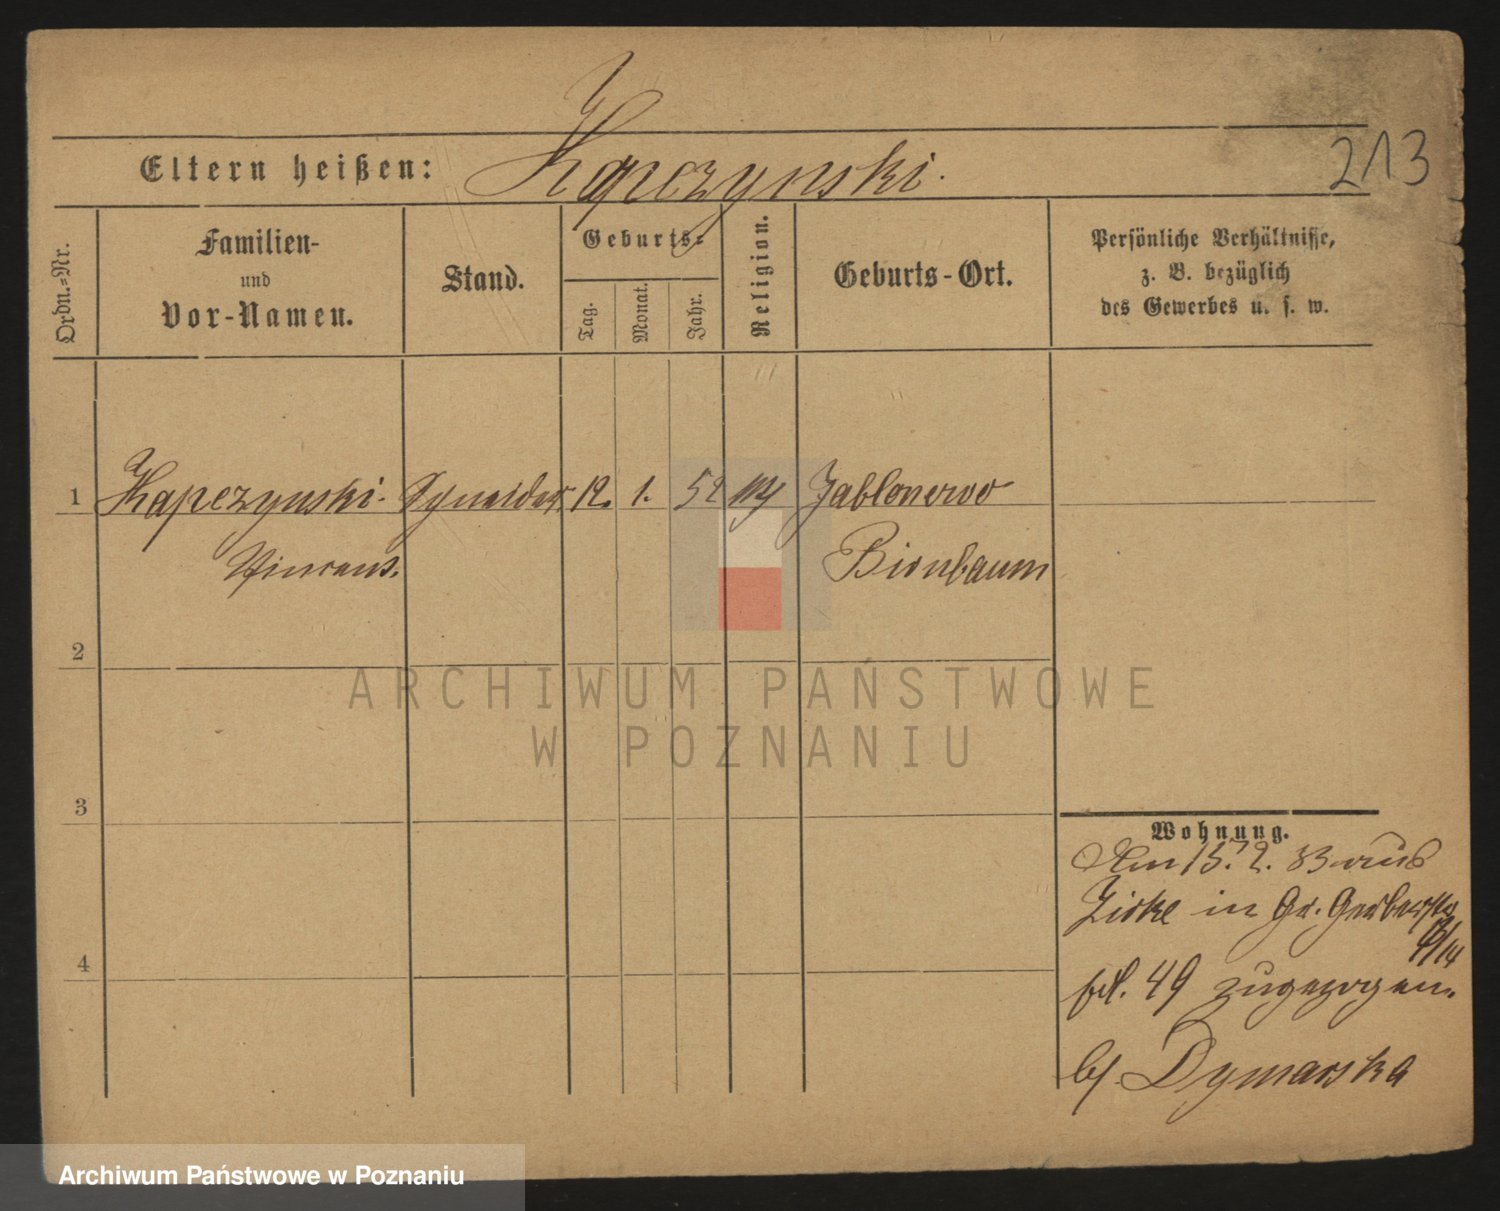 Eltern heißen: Kapczynski.
213
Ordn.-Nr.
Familien-
und
Vor-Namen.
Stand.
Geburts-
Tag.
Monat.
Jahr.
Religion.
Geburts-Ort.
Persönliche Verhältnisse,
z. B. bezüglich
des Gewerbes u. s. w.
1 Kapczynski. 12. 1. 52 Jablonowo
Birnbaum
2
3
4
Wohnung.
Am 15. 2. 83 aus
Zirke in Gr. Gerberstr.
49 zugezogen.
b/. Dymarska
ARCHIWUM PAŃSTWOWE
W POZNANIU
Archiwum Państwowe w Poznaniu